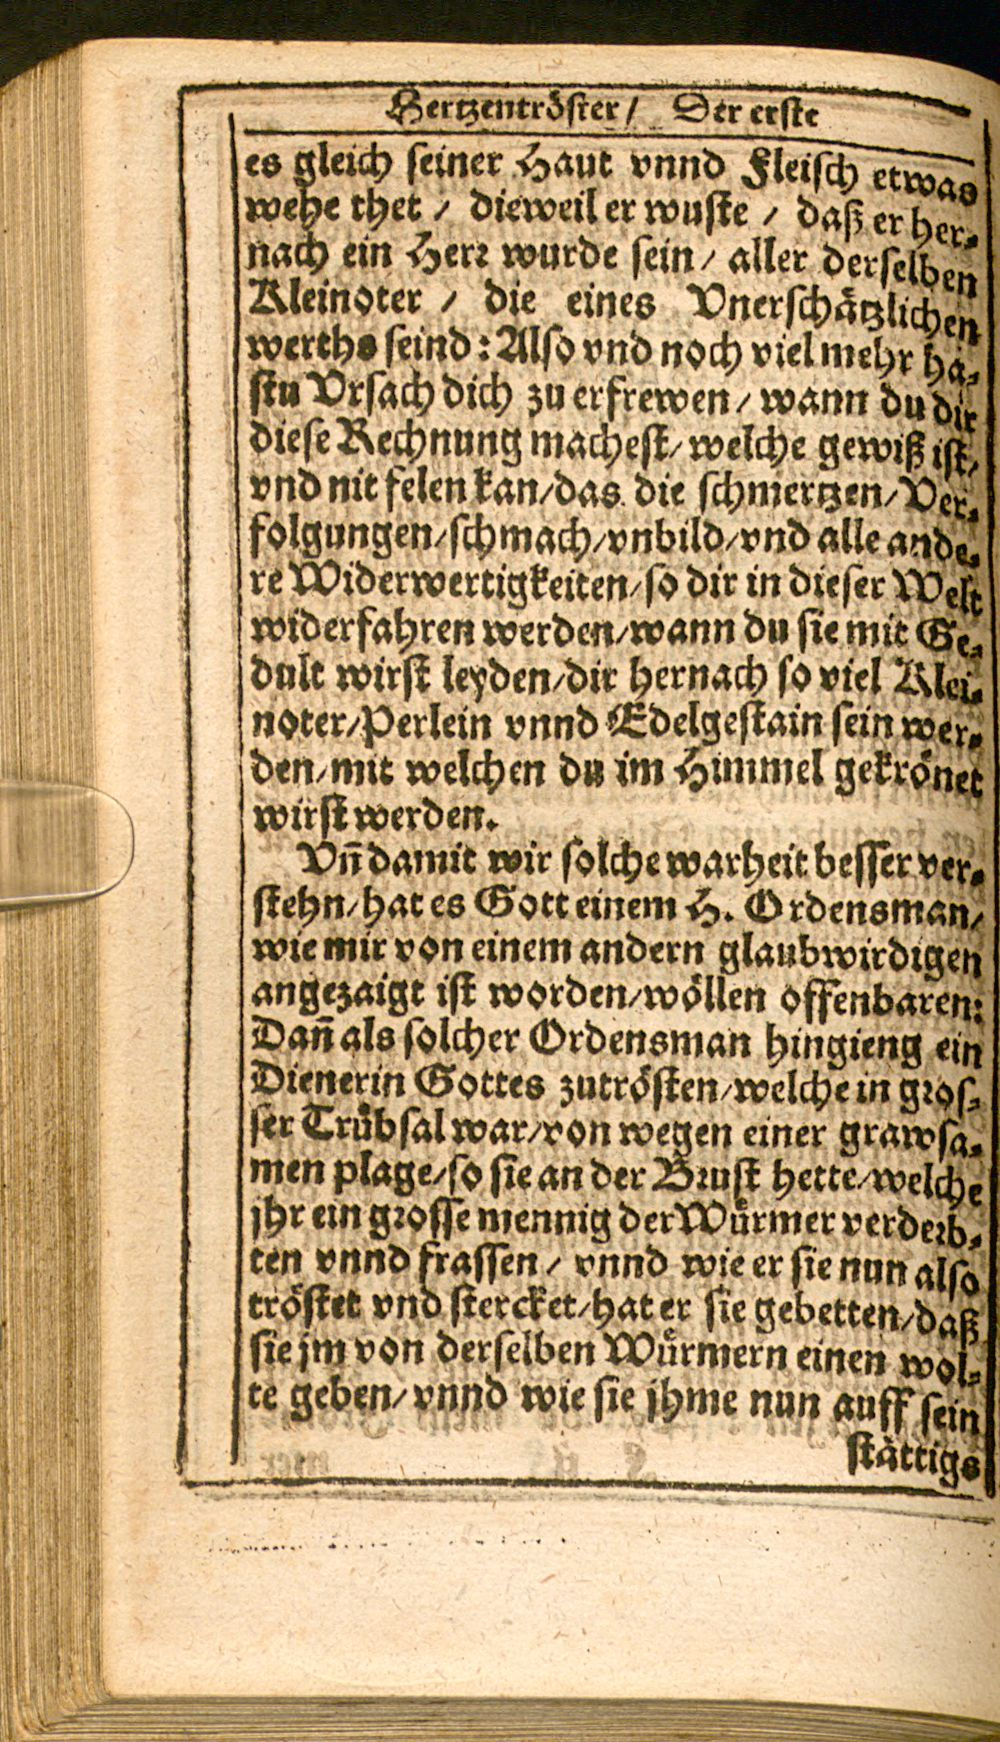 Hertzentröster / Der erste
es gleich seiner Haut vnnd Fleisch etwas
wehe thet / dieweil er wuste / daß er her-
nach ein Herr wurde sein / aller derselben
Kleinoter / die eines Vnerschätzlichen
werths seind: Also vnd noch viel mehr ha-
stu Vrsach dich zu erfrewen / wann du dir
diese Rechnung machest / welche gewiß ist /
vnd nit felen kan / das die schmertzen / Ver-
folgungen / schmach / vnbild / vnd alle ande-
re Widerwertigkeiten / so dir in dieser Welt
widerfahren werden / wann du sie mit Ge-
dult wirst leyden / dir hernach so viel Klei-
noter / Perlein vnnd Edelgestain sein wer-
den / mit welchen du im Himmel gekrönet
wirst werden.
Vñ damit wir solche warheit besser ver-
stehn / hat es Gott einem H. Ordensman /
wie mir von einem andern glaubwirdigen
angezaigt ist worden / wöllen offenbaren:
Dañ als solcher Ordensman hingieng ein
Dienerin Gottes zutrösten / welche in gros-
ser Trübsal war / von wegen einer grawsa-
men plage / so sie an der Brust hette / welche
jhr ein grosse mennig der Würmer verderb-
ten vnnd frassen / vnnd wie er sie nun also
tröstet vnd stercket / hat er sie gebetten / daß
sie jm von derselben Würmern einen wol-
te geben / vnnd wie sie jhme nun auff sein
stättigs